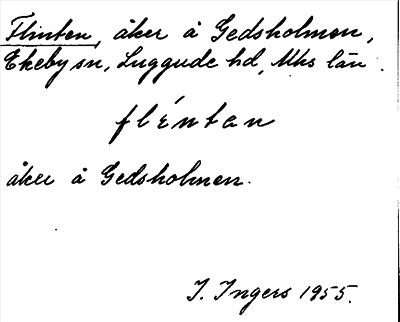 Flinten, åker å Gedsholmen,
Ekeby sn, Luggude hd, Mhs län.
flę́ntan
åker å Gedsholmen.
I. Ingers 1955.